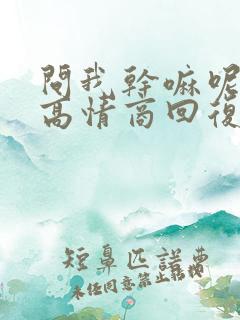 問我幹嘛呢
高情商回復
短鼻匹諾曹
未经同意禁止转载